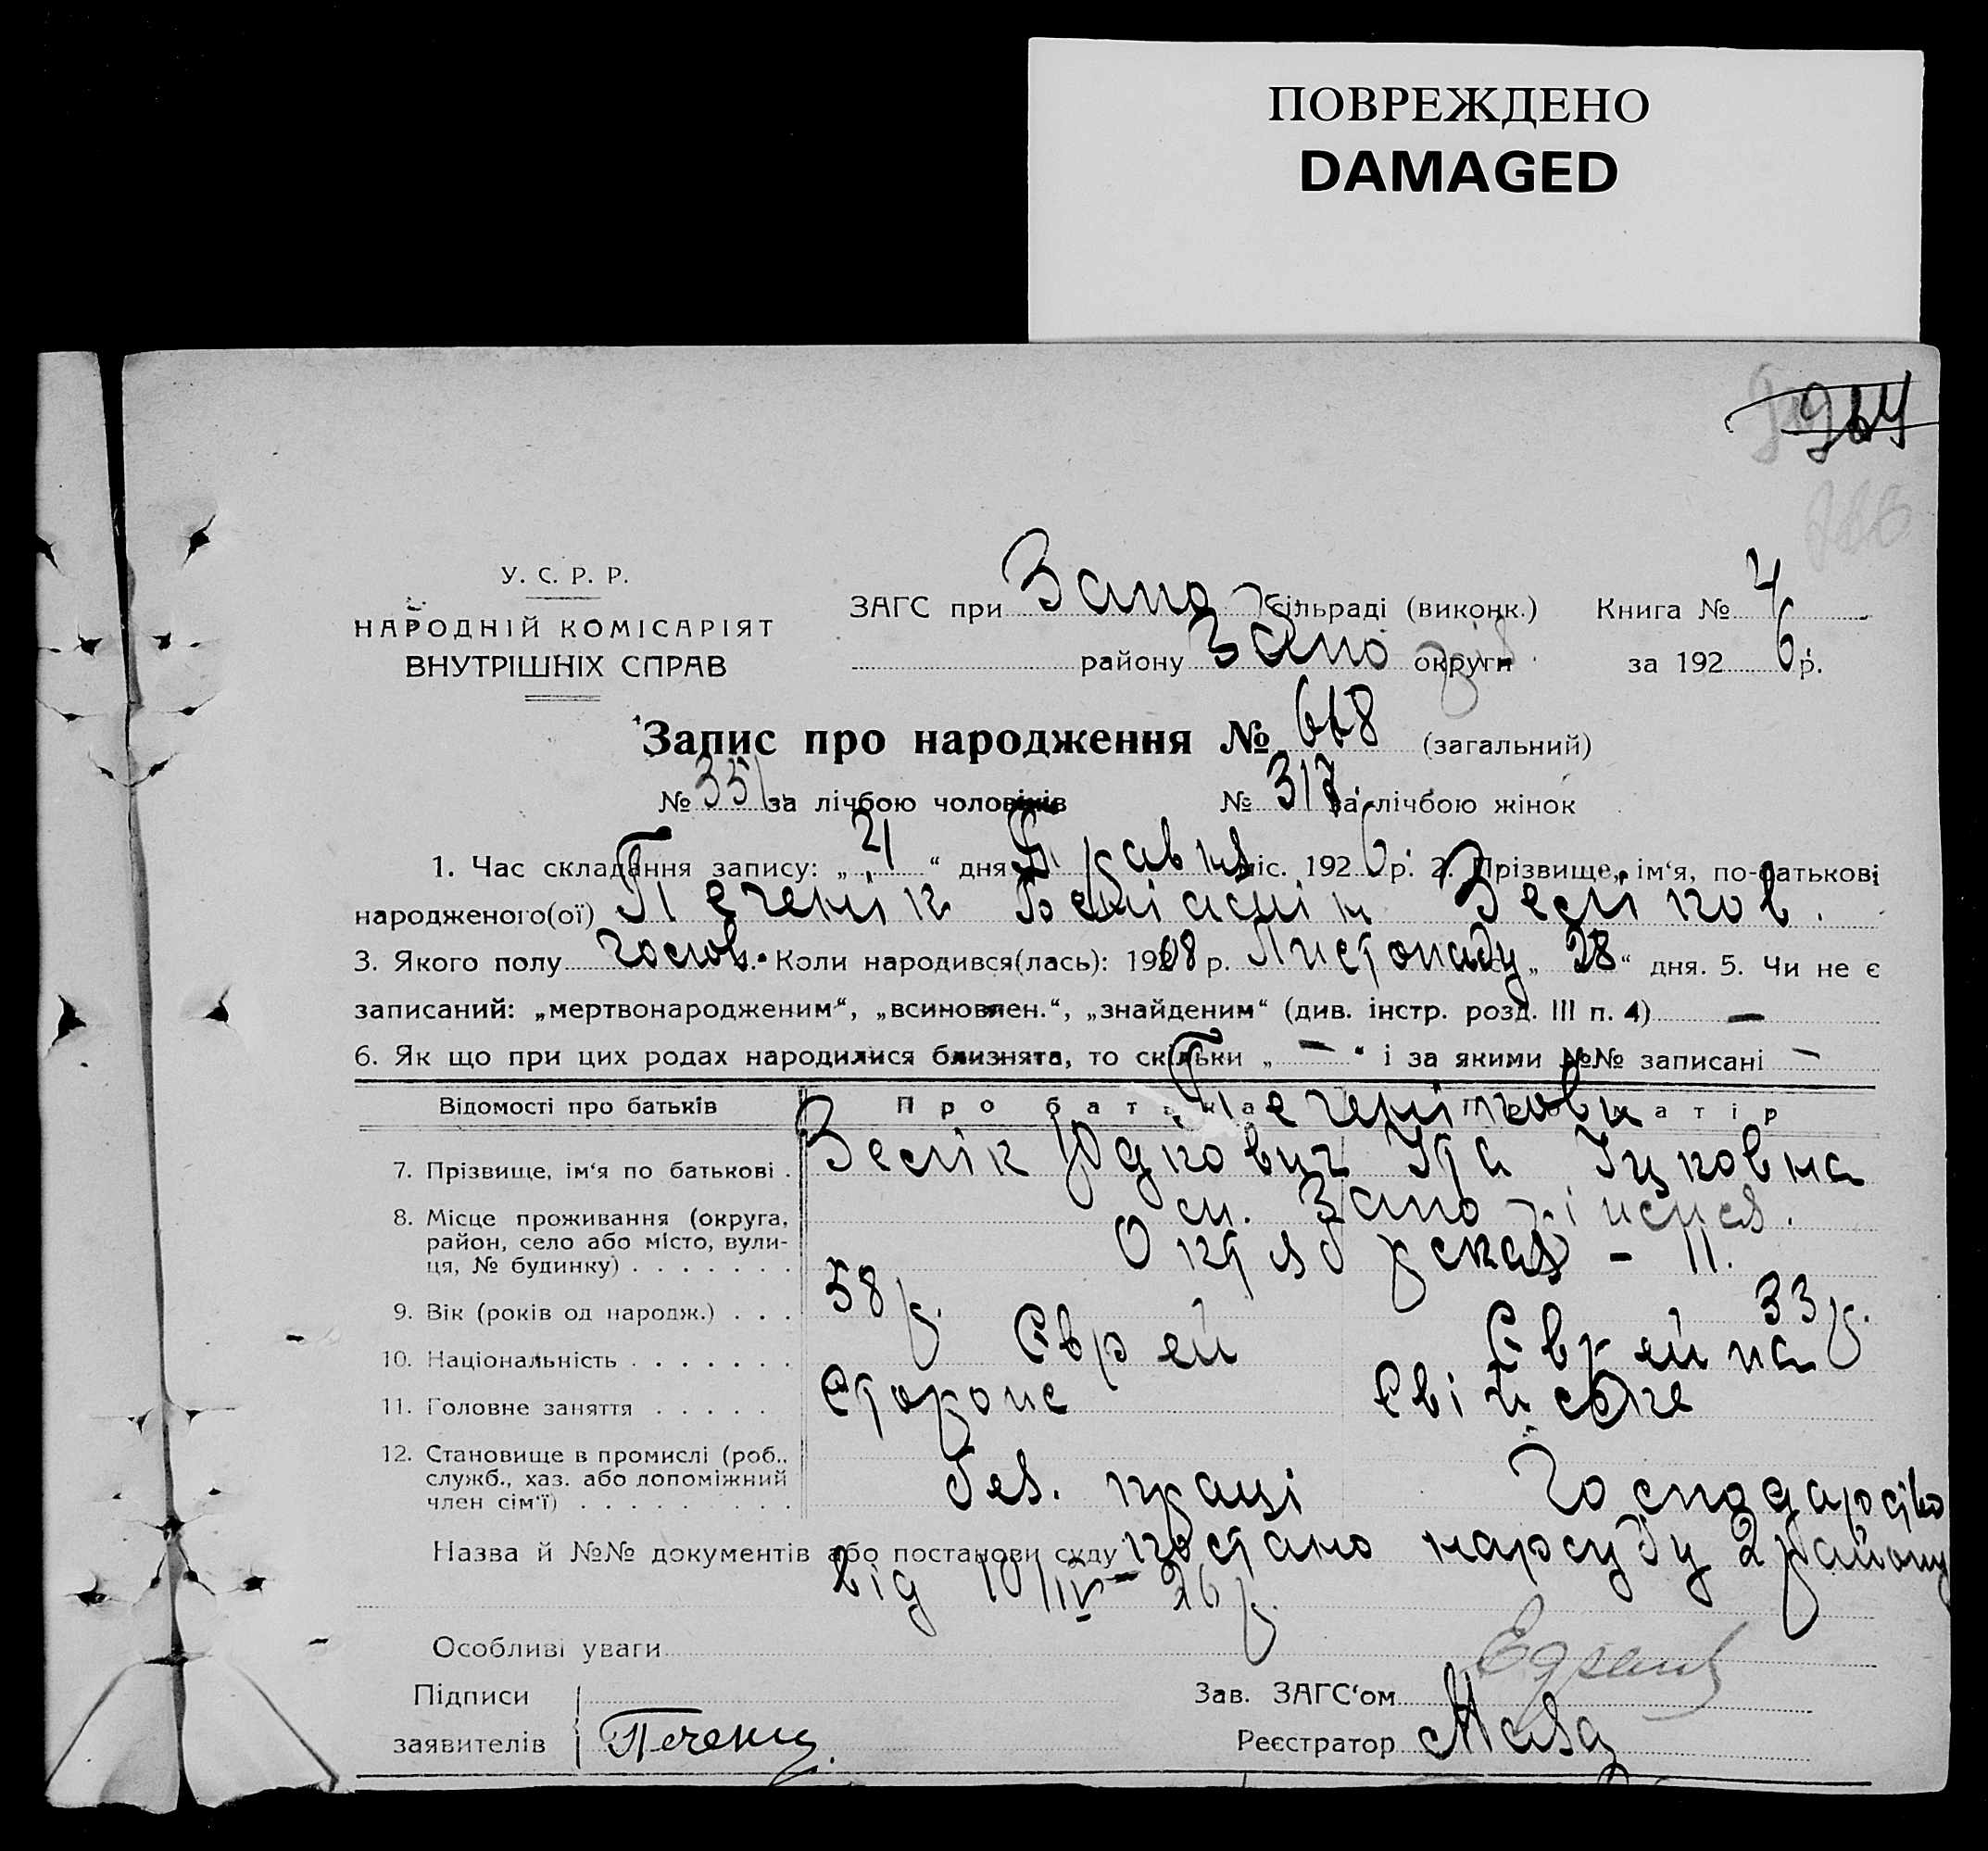 ПОВРЕЖДЕНО
DAMAGED
У. С. Р. Р.
НАРОДНІЙ КОМІСАРІЯТ
ВНУТРІШНІХ СПРАВ
ЗАГС при Запо сільраді (виконк.) Книга № 4
району Запо округи за 1926 р.
Запис про народження № 668 (загальний)
№ 351 за лічбою чоловіків № 317 за лічбою жінок
1. Час складання запису: „21“ дня Травня міс. 1926 р. 2. Прізвище, ім'я, по-батькові
народженого(ої) Печенік Беніамін Зелików.
3. Якого полу чолов. Коли народився(лась): 1908 р. Листопаду „28“ дня. 5. Чи не є
записаний: „мертвонародженим“, „всиновлен.“, „знайденим“ (див. інстр. розд. III п. 4) —
6. Як що при цих родах народилися близнята, то скільки „—“ і за якими №№ записані —
Відомості про батьків Про батька Про матір
Печенікови
7. Прізвище, ім'я по батькові . Зелік Юдкович Іта Іцковна
8. Місце проживання (округа, район, село або місто, вулиця, № будинку) . . . . . . . м. Запоріжжя.
Октябрская - 11.
9. Вік (років од народж.) . . . 58 р. 33 р.
10. Національність . . . . . . . Єврей Єврейка
11. Головне заняття . . . . .
12. Становище в промислі (роб., служб., хаз. або допоміжний член сім'ї) . . . . . . . . . без. праці Господарство
Назва й №№ документів або постанови суду постано нарсуду 2 району
від 10/IV-26 р.
Особливі уваги
Підписи
заявителів Печеник
Зав. ЗАГС'ом
Реєстратор